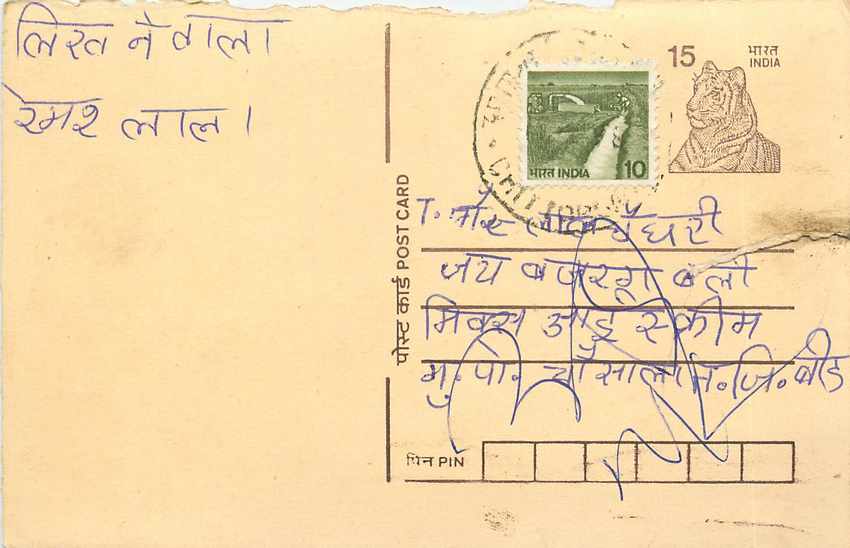 लिखने वाला
रमेश लाल।
15 भारत INDIA
भारत INDIA 10
पोस्ट कार्ड POST CARD
लाल चौधरी
जय बजरंग बली
मिक्स आई स्क्रीम
मु. पो. चौसाला त. जि. बीड
पिन PIN